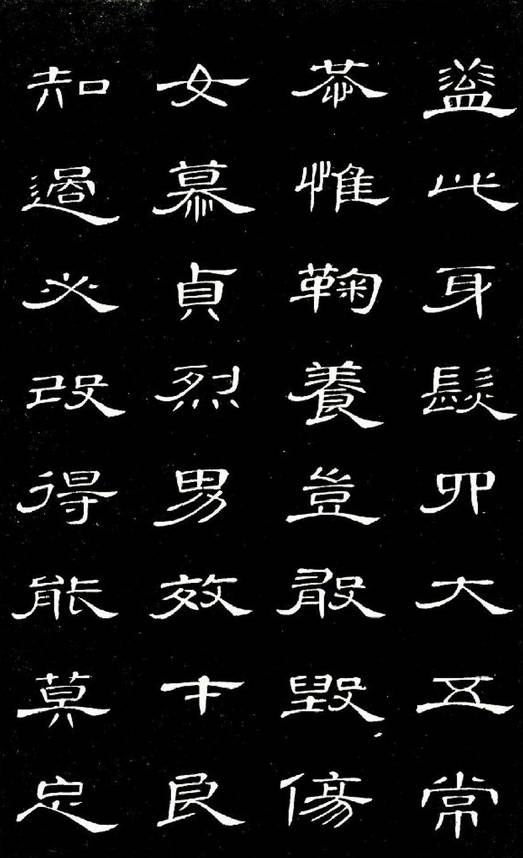 蓋此身髮四大五常
恭惟鞠養豈敢毀傷
女慕貞烈男效才良
知過必改得能莫忘